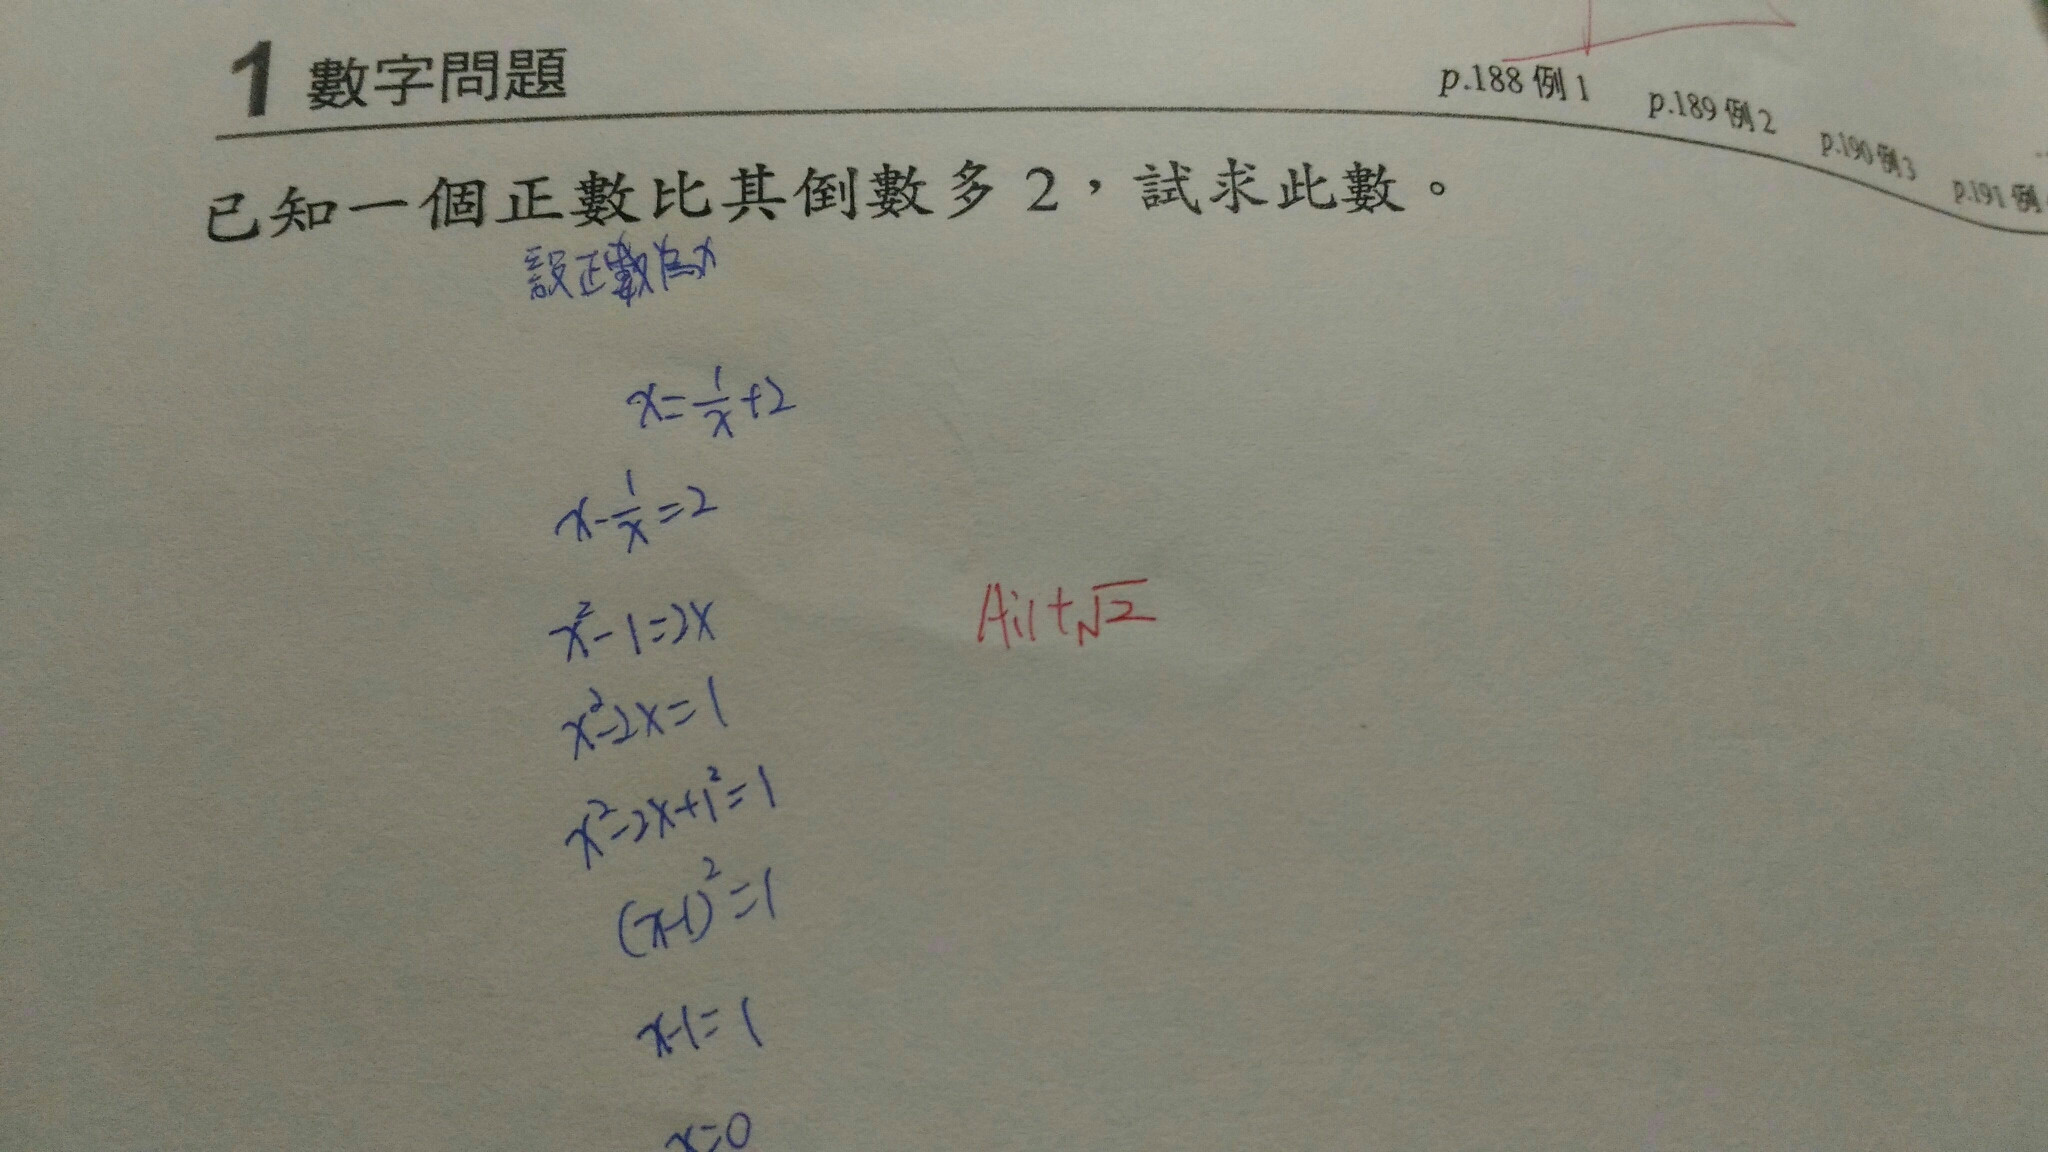 1 數字問題
p.188 例1 p.189 例2 p.190 例3 p.191 例
已知一個正數比其倒數多 2,試求此數。
設正數為x
x=1/x+2
x-1/x=2
x²-1=2x
A:1+√2
x²-2x=1
x²-2x+1²=1
(x-1)²=1
x-1=1
x=0